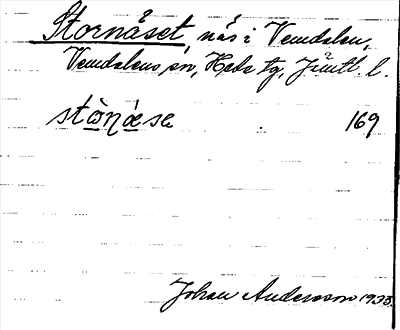 Stornåset, nås i Vemdalen,
Vemdalens sn, Hede tg, Jämtl. l.
stòn̥áse 169
Johan Andersson 1935.